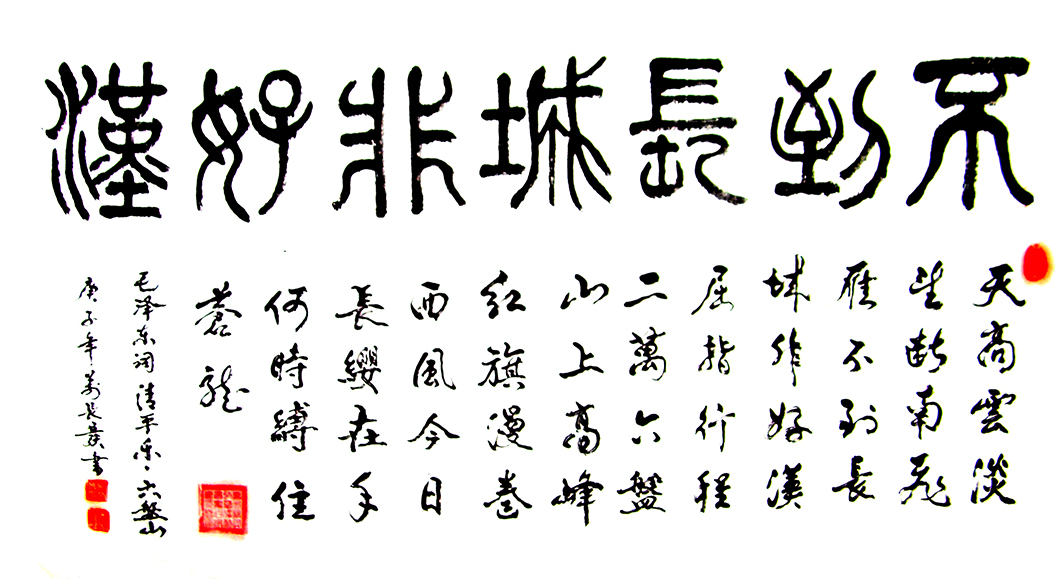 不到長城非好漢
天高雲淡
望断南飛
雁不到長
城非好漢
屈指行程
二萬六盤
山上高峰
紅旗漫卷
西風今日
長纓在手
何時縛住
蒼龍
毛泽东词清平乐、六盘山
庚子年 书